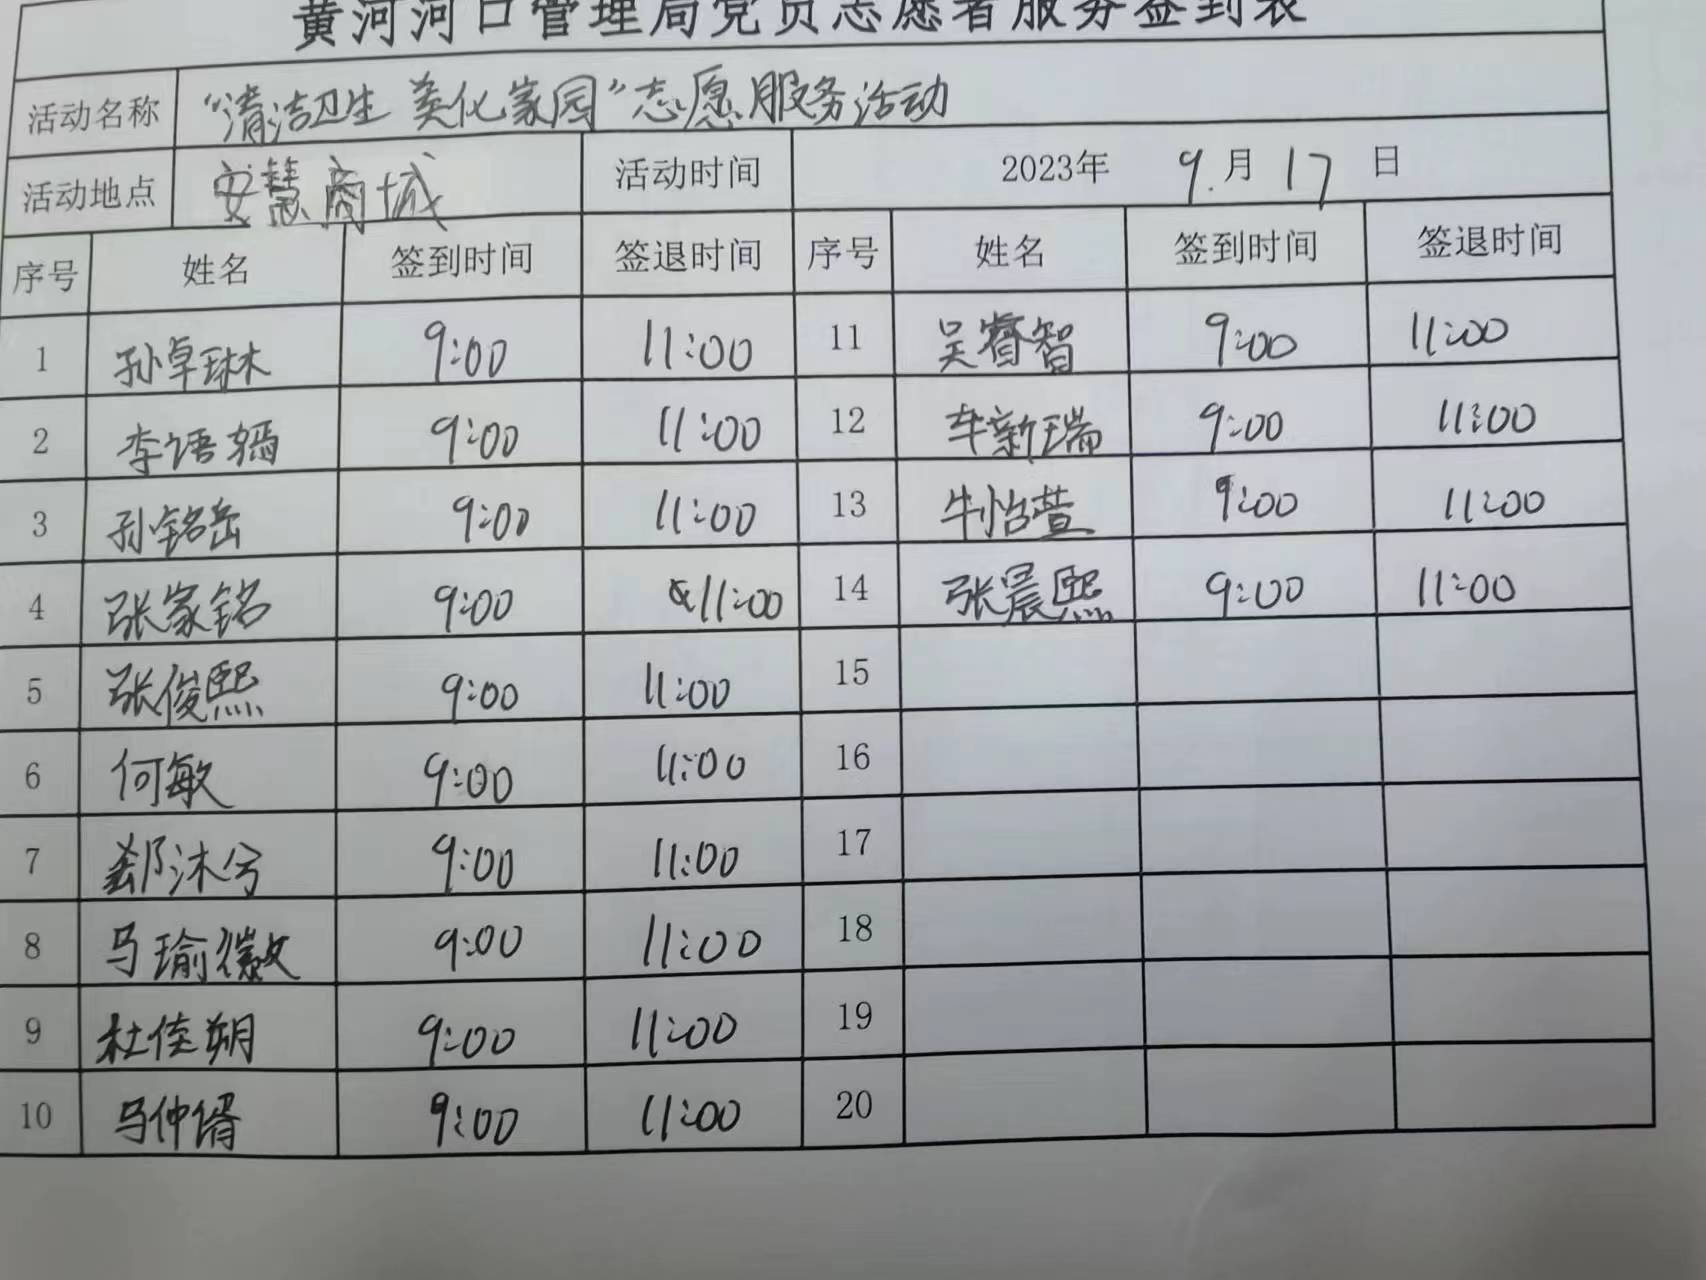 黄河河口管理局党员志愿者服务签到表
活动名称 “清洁卫生 美化家园”志愿服务活动
活动地点 安慧商城 活动时间 2023年 9.月 17 日
序号 姓名 签到时间 签退时间 序号 姓名 签到时间 签退时间
1 孙卓琳 9:00 11:00 11 吴睿智 9:00 11:00
2 李语嫣 9:00 11:00 12 车新瑞 9:00 11:00
3 孙铭岳 9:00 11:00 13 牛怡萱 9:00 11:00
4 张家铭 9:00 11:00 14 张晨熙 9:00 11:00
5 张俊熙 9:00 11:00 15
6 何敏 9:00 11:00 16
7 郄沐兮 9:00 11:00 17
8 马瑜徽 9:00 11:00 18
9 杜佳朔 9:00 11:00 19
10 马仲偦 9:00 11:00 20